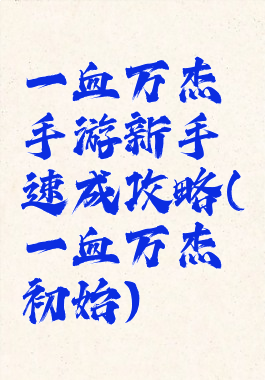 一血万杰
手游新手
速成攻略(
一血万杰
初始)